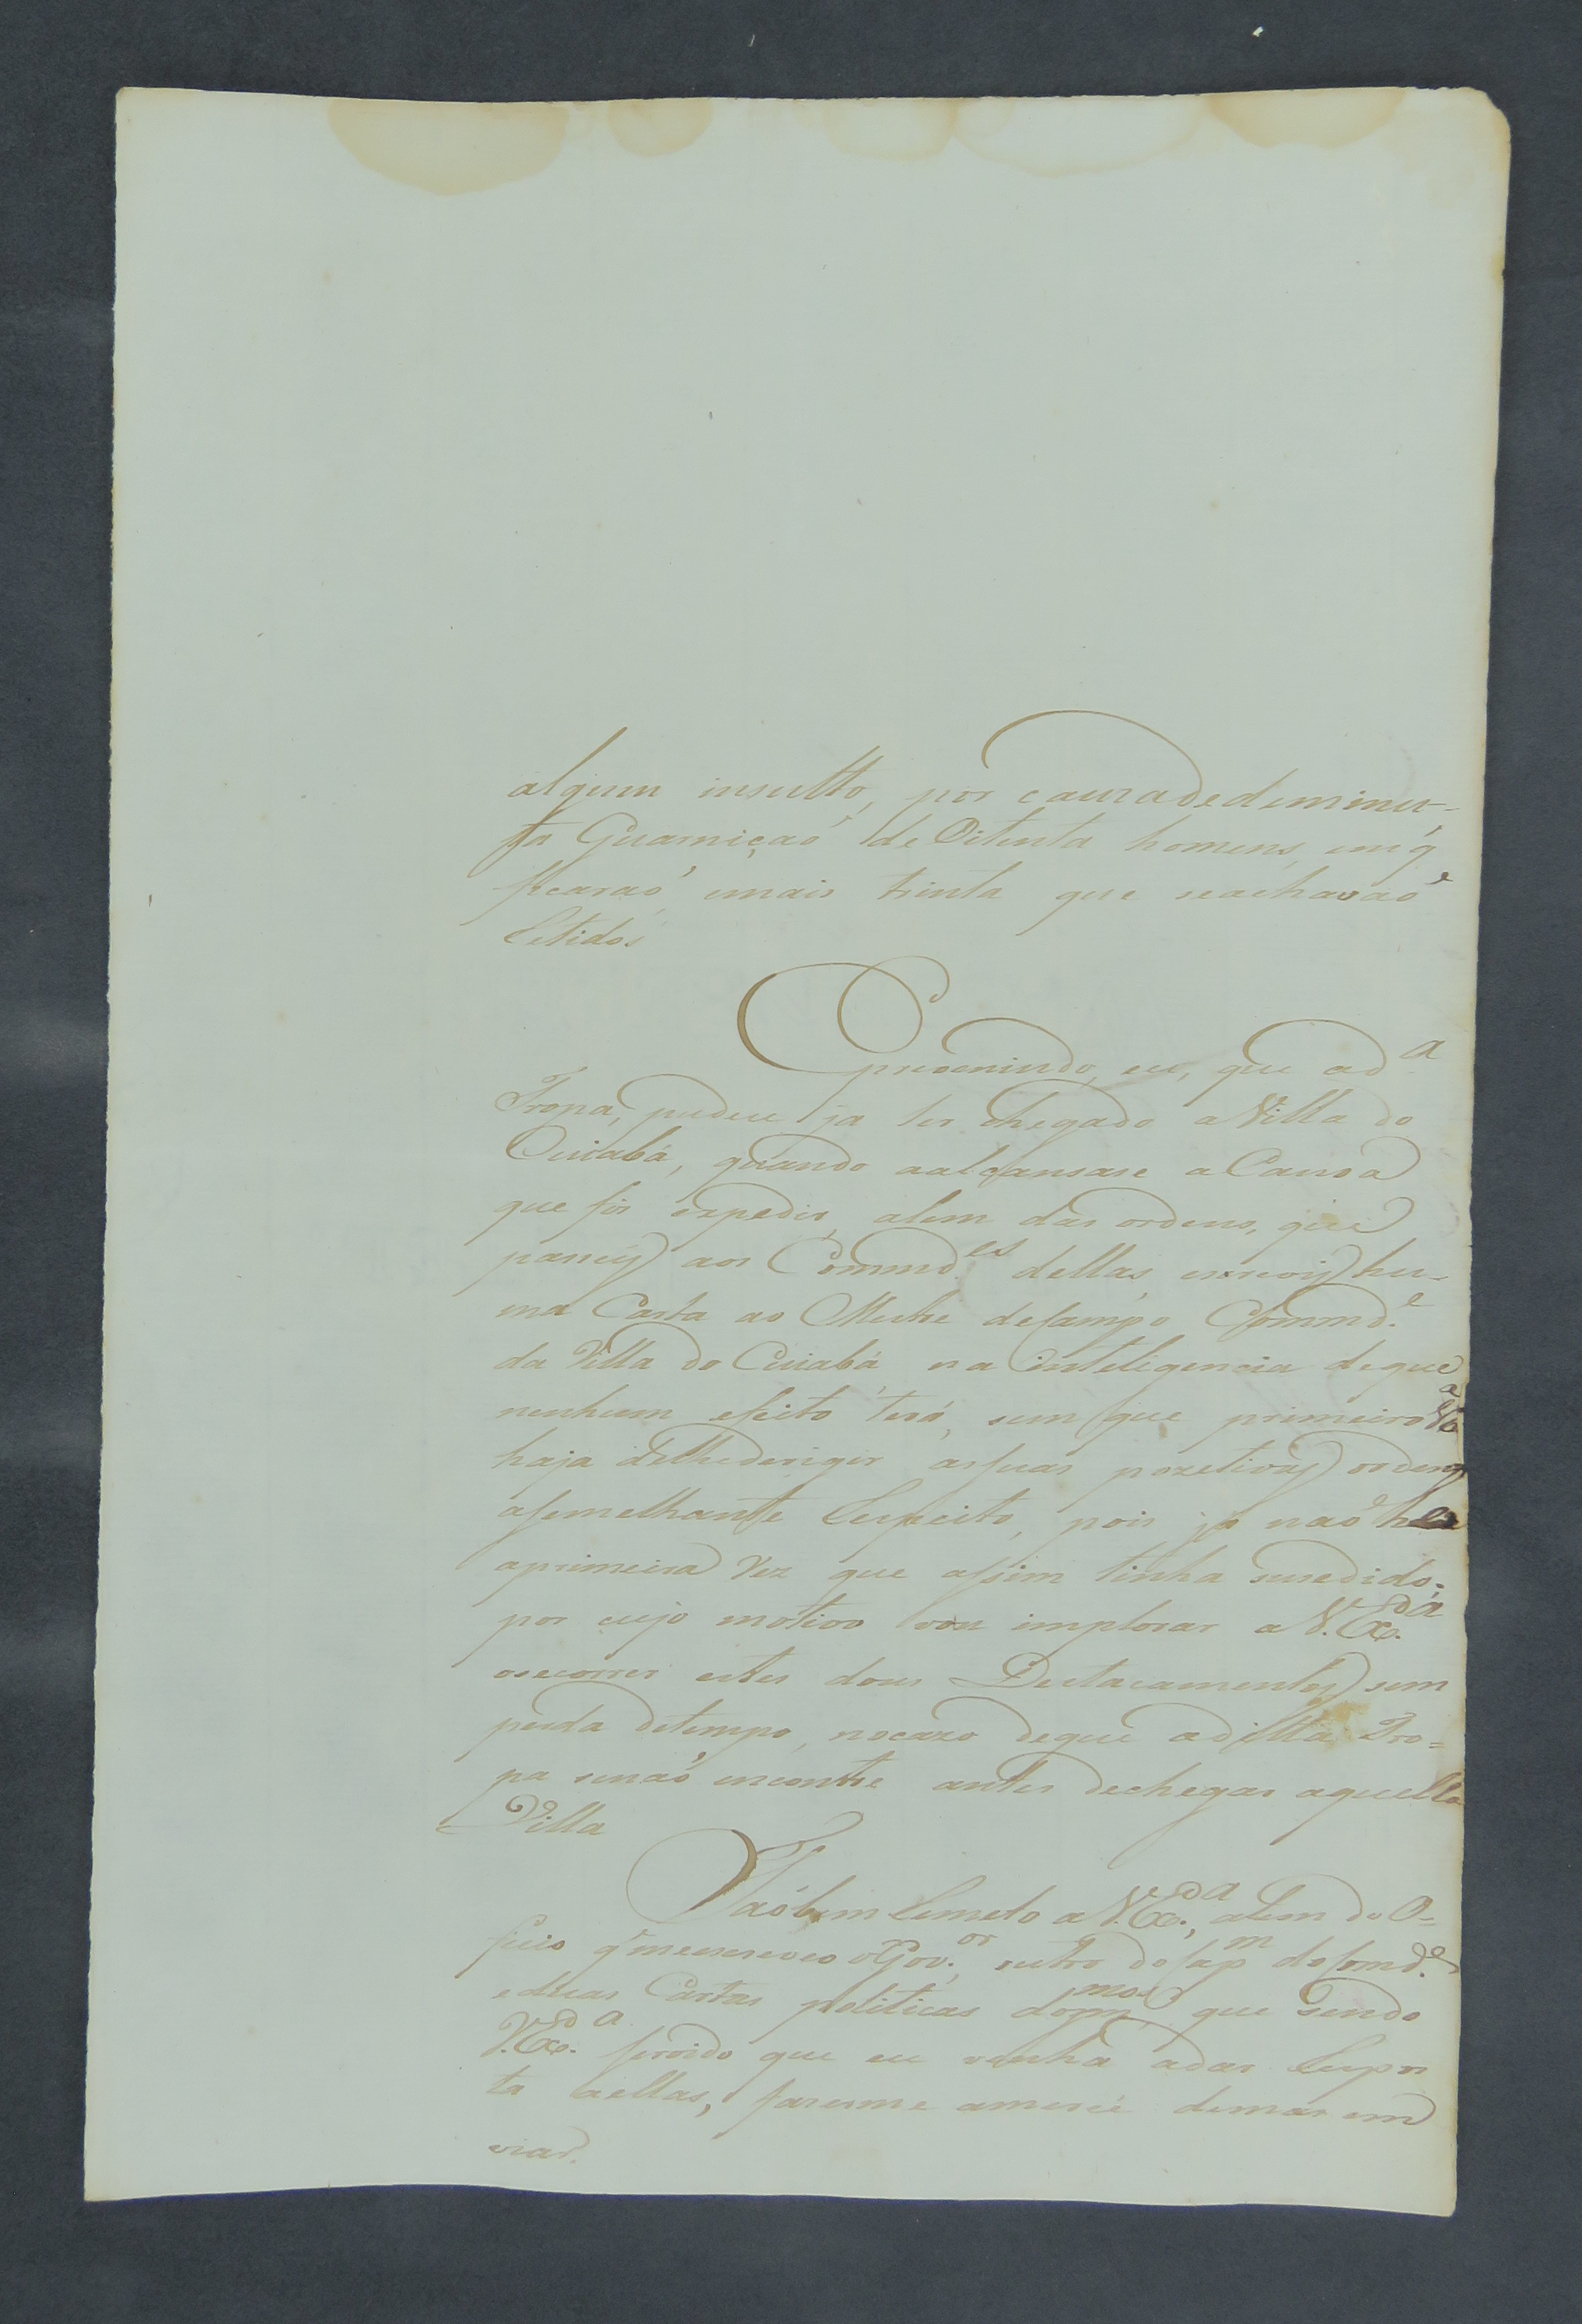 algum insulto, por cauzadedeminu-
ta Guarniçaõ de Oitenta homens, em q̃
ficaraõ emais trinta que seachavaõ
Retidos
Epresomindo, eu, que ad.ª
Tropa, pudece ja ter chegado aVilla do
Cuiabá, quando aalcansase a Canoa
que fis expedir, alem das ordens, que
pacey aos Commd.es dellas, escrevy hu-
ma Carta ao Mestre deCampo Commd.e
da Villa do Cuiabá na inteligencia deque
nenhum efeito terá, sem que primeiro V.ª
haja delhederigir assuas pozetivas ordens
asemelhante Respeito, pois ja naõ he
aprimeira vez que assim tinha susedido;
por cujo motivo vou implorar a V. Ex.ª
osecorrer estes dous Destacamentos sem
perda detempo, nocazo deque aditta Tro=
pa senaõ encontre antes dechegar aquella
Villa
Taõbem Remeto a V. Ex.ª, alem do O-
ficio q̃ meescreveo oGov.or, outro doCap.m doComd.e
eduas Cartas politicas dosm.mos que sendo
V. Ex.ª servido que eu venha adar Respos
ta aellas, farseme amerce demas em
viar.